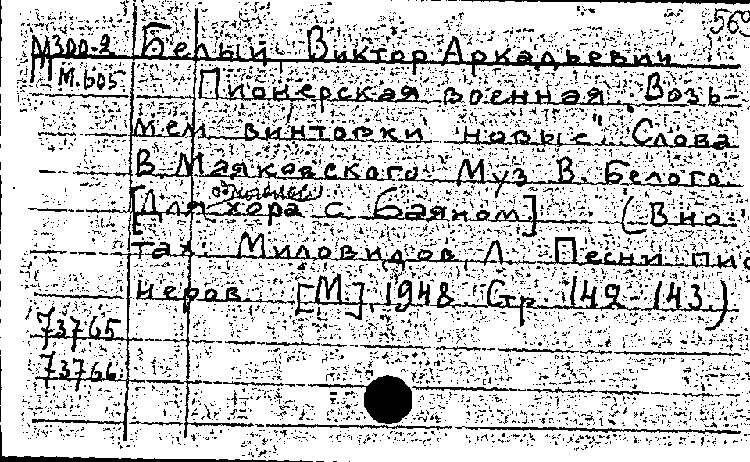 569
М300-2 Белый, Виктор Аркадьевич
М.605 Пионерская военная. "Возь-
мем винтовки новые". Слова
В. Маяковского. Муз. В. Белого.
[Для хора с баяном] (В но-
тах: Миловидов Л. Песни пио
неров. [М.], 1948. Стр. 142-143.)
73765
73766